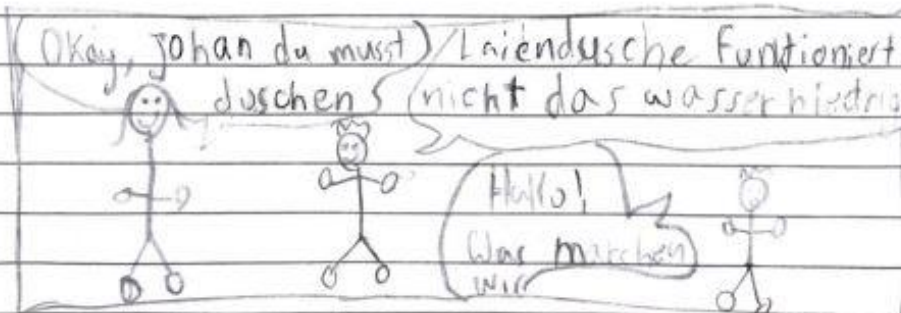 Okay, Johan du musst
duschen
Laiendusche funktioniert
nicht das wasser niedrig
Hallo!
Was marchen
wir